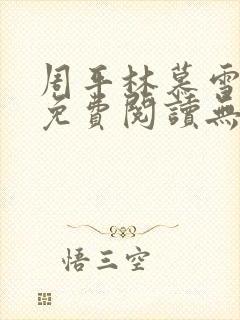 周平林慕雪
免費閱讀無
悟三空